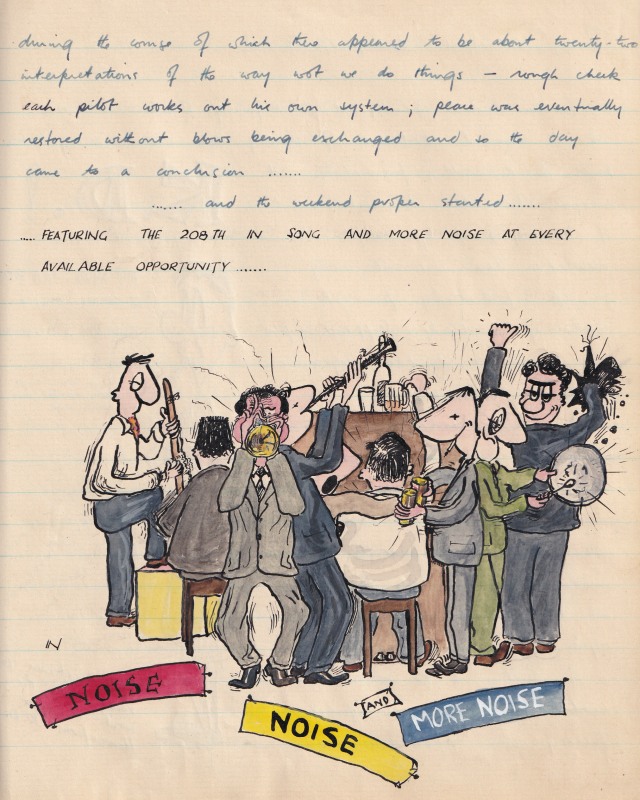 during the course of which there appeared to be about twenty-two
interpretations of the way wot we do things — rough check
each pilot works out his own system ; peace was eventually
restored without blows being exchanged and so the day
came to a conclusion .......
....... and the weekend proper started .......
..... FEATURING THE 208TH IN SONG AND MORE NOISE AT EVERY
AVAILABLE OPPORTUNITY .......
NOISE
NOISE
AND
MORE NOISE